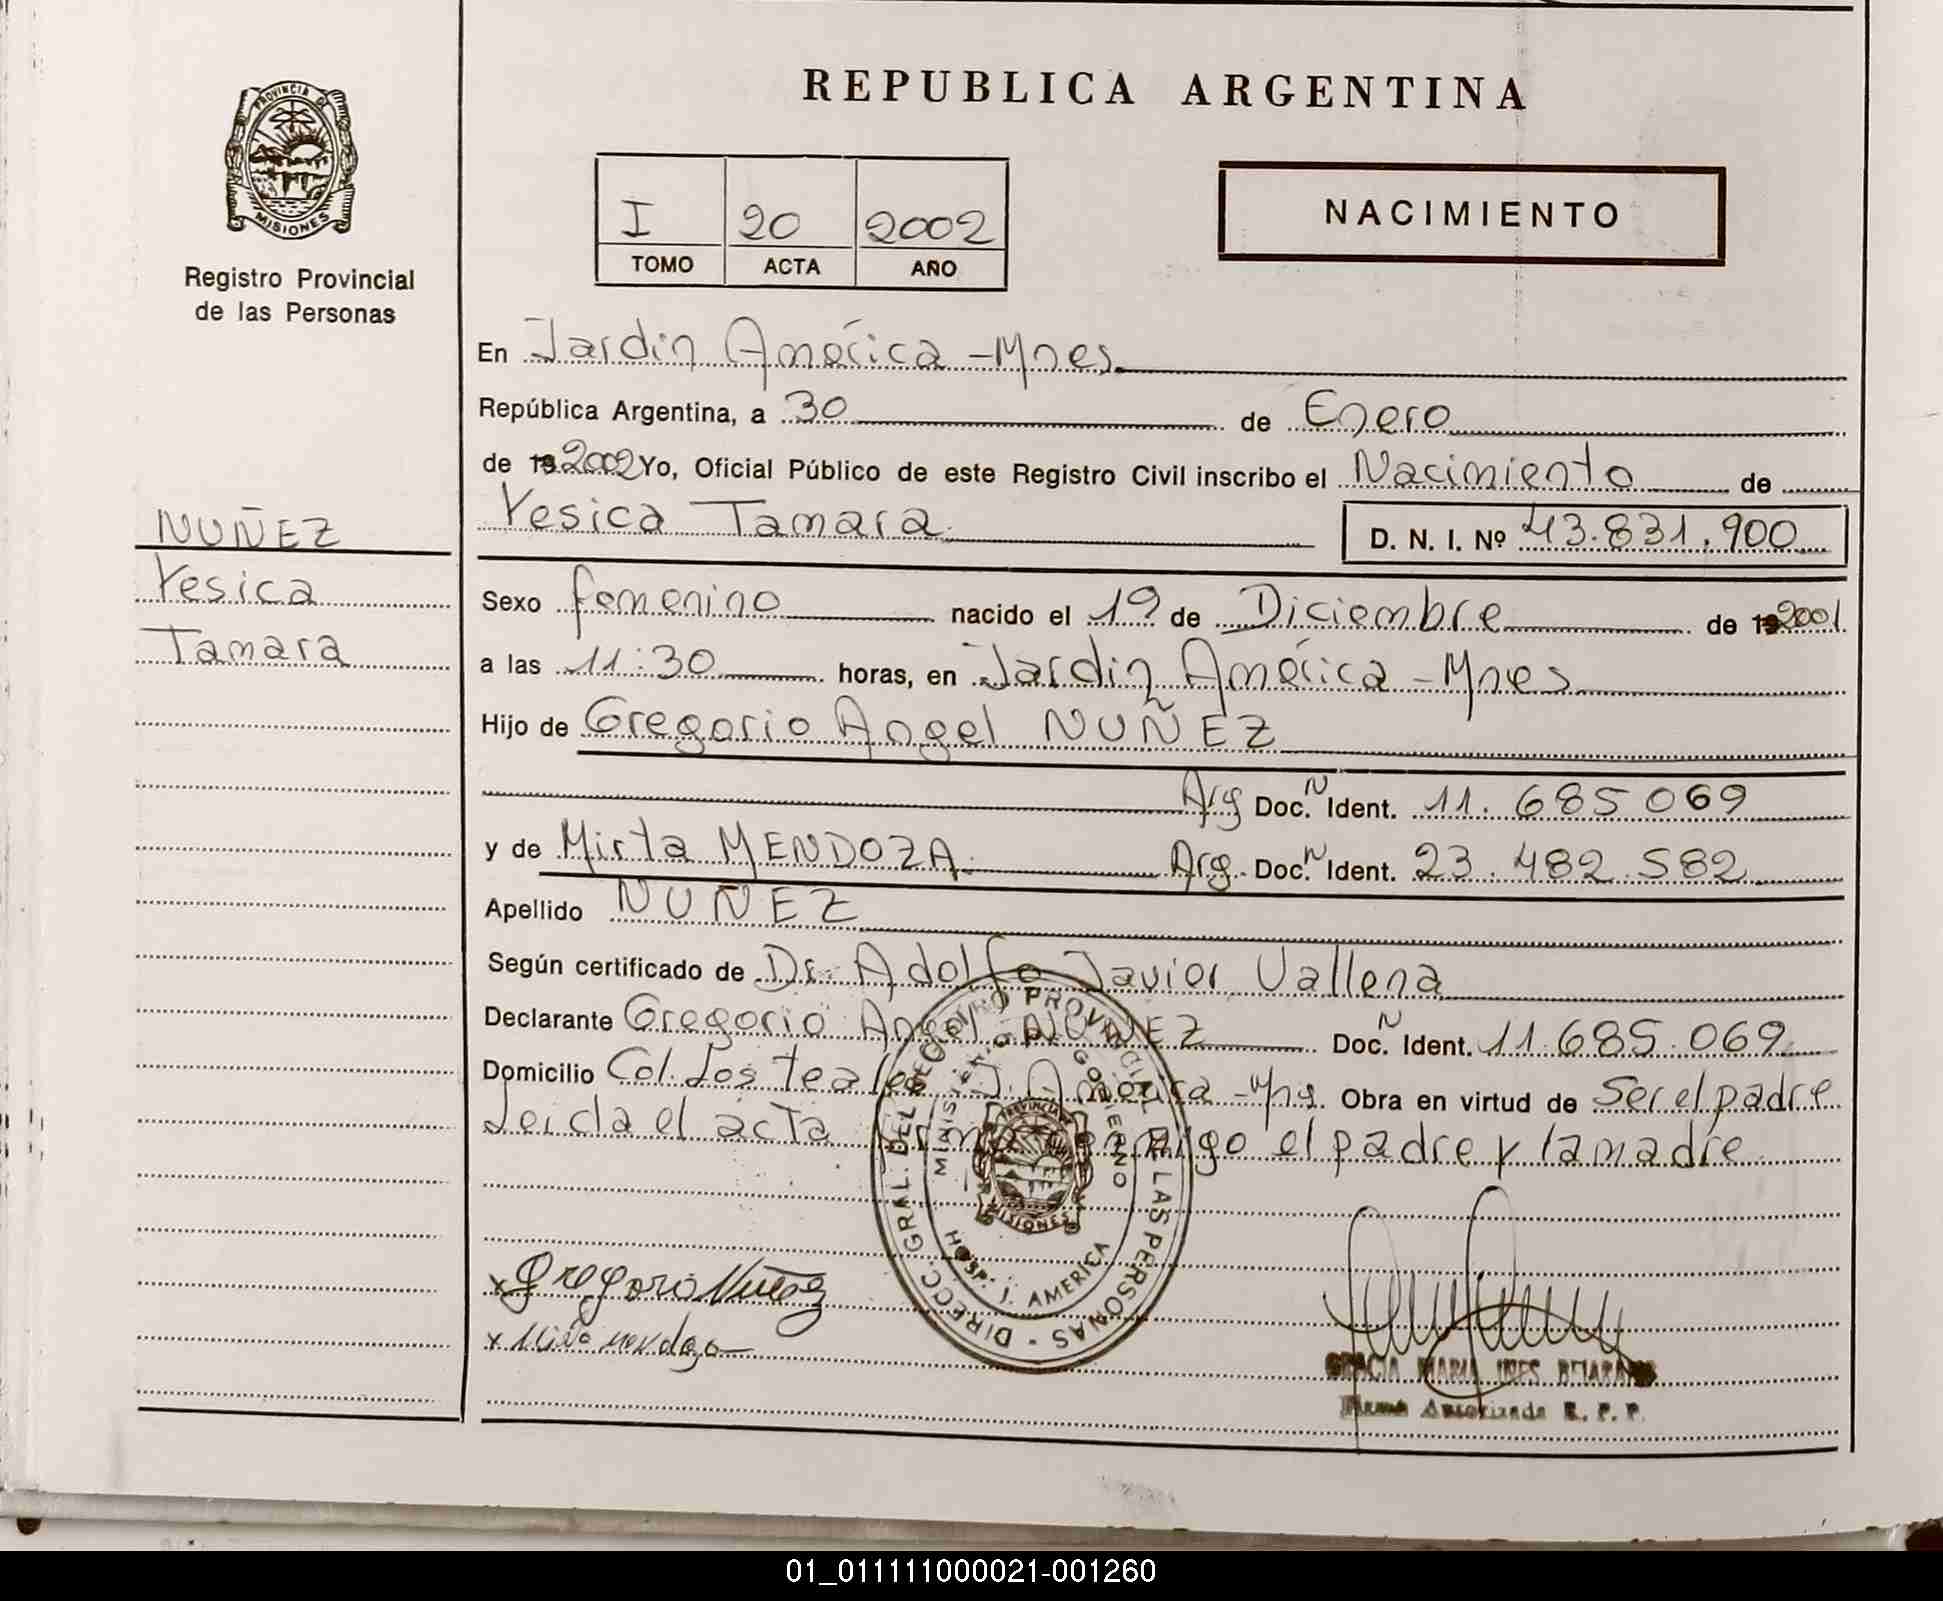 REPUBLICA ARGENTINA
PROVINCIA D
MISIONES
Registro Provincial
de las Personas
I 20 2002
TOMO ACTA AÑO
NACIMIENTO
En Jardin América - Mnes.
República Argentina, a 30 de Enero
de 19 2002 Yo, Oficial Público de este Registro Civil inscribo el Nacimiento de
Yesica Tamara D. N. I. Nº 43.831.900
NUÑEZ
Yesica
Tamara
Sexo femenino nacido el 19 de Diciembre de 19 2001
a las 11:30 horas, en Jardin América - Mnes
Hijo de Gregorio Angel NUÑEZ
Arg Doc. N Ident. 11.685069
y de Mirta MENDOZA. Arg. Doc. N Ident. 23.482.582
Apellido NUÑEZ
Según certificado de Dr. Adolfo Javier Vallena
Declarante Gregorio Angel NUÑEZ Doc. N Ident. 11.685.069
Domicilio Col. Los teales J. América - Mns. Obra en virtud de Ser el padre
Leida el acta firma conmigo el padre y la madre
DIRECC. GRAL. DEL REGISTRO PROVINCIAL DE LAS PERSONAS -
MINISTERIO DE GOBIERNO
PROVINCIA
MISIONES
HOSP. J. AMERICA
x Gregorio Nuñez
x
GRACIA MARIA INES
Firma Autorizada R. P. P.
01_011111000021-001260